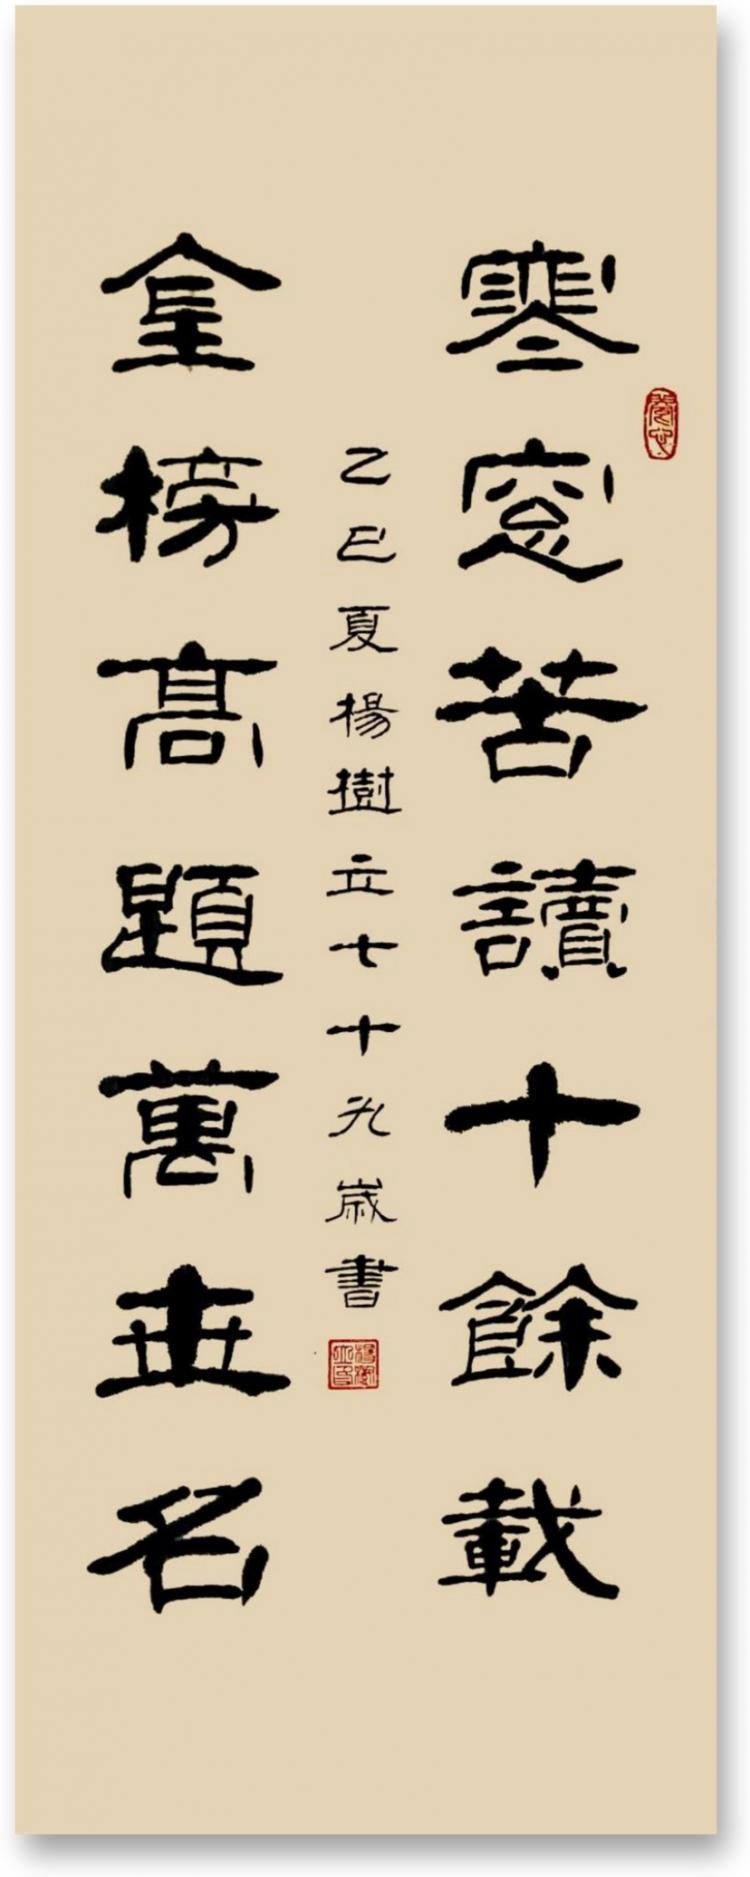 寒窓苦讀十餘載
乙巳夏楊樹立七十九歲書
金榜高題萬世名